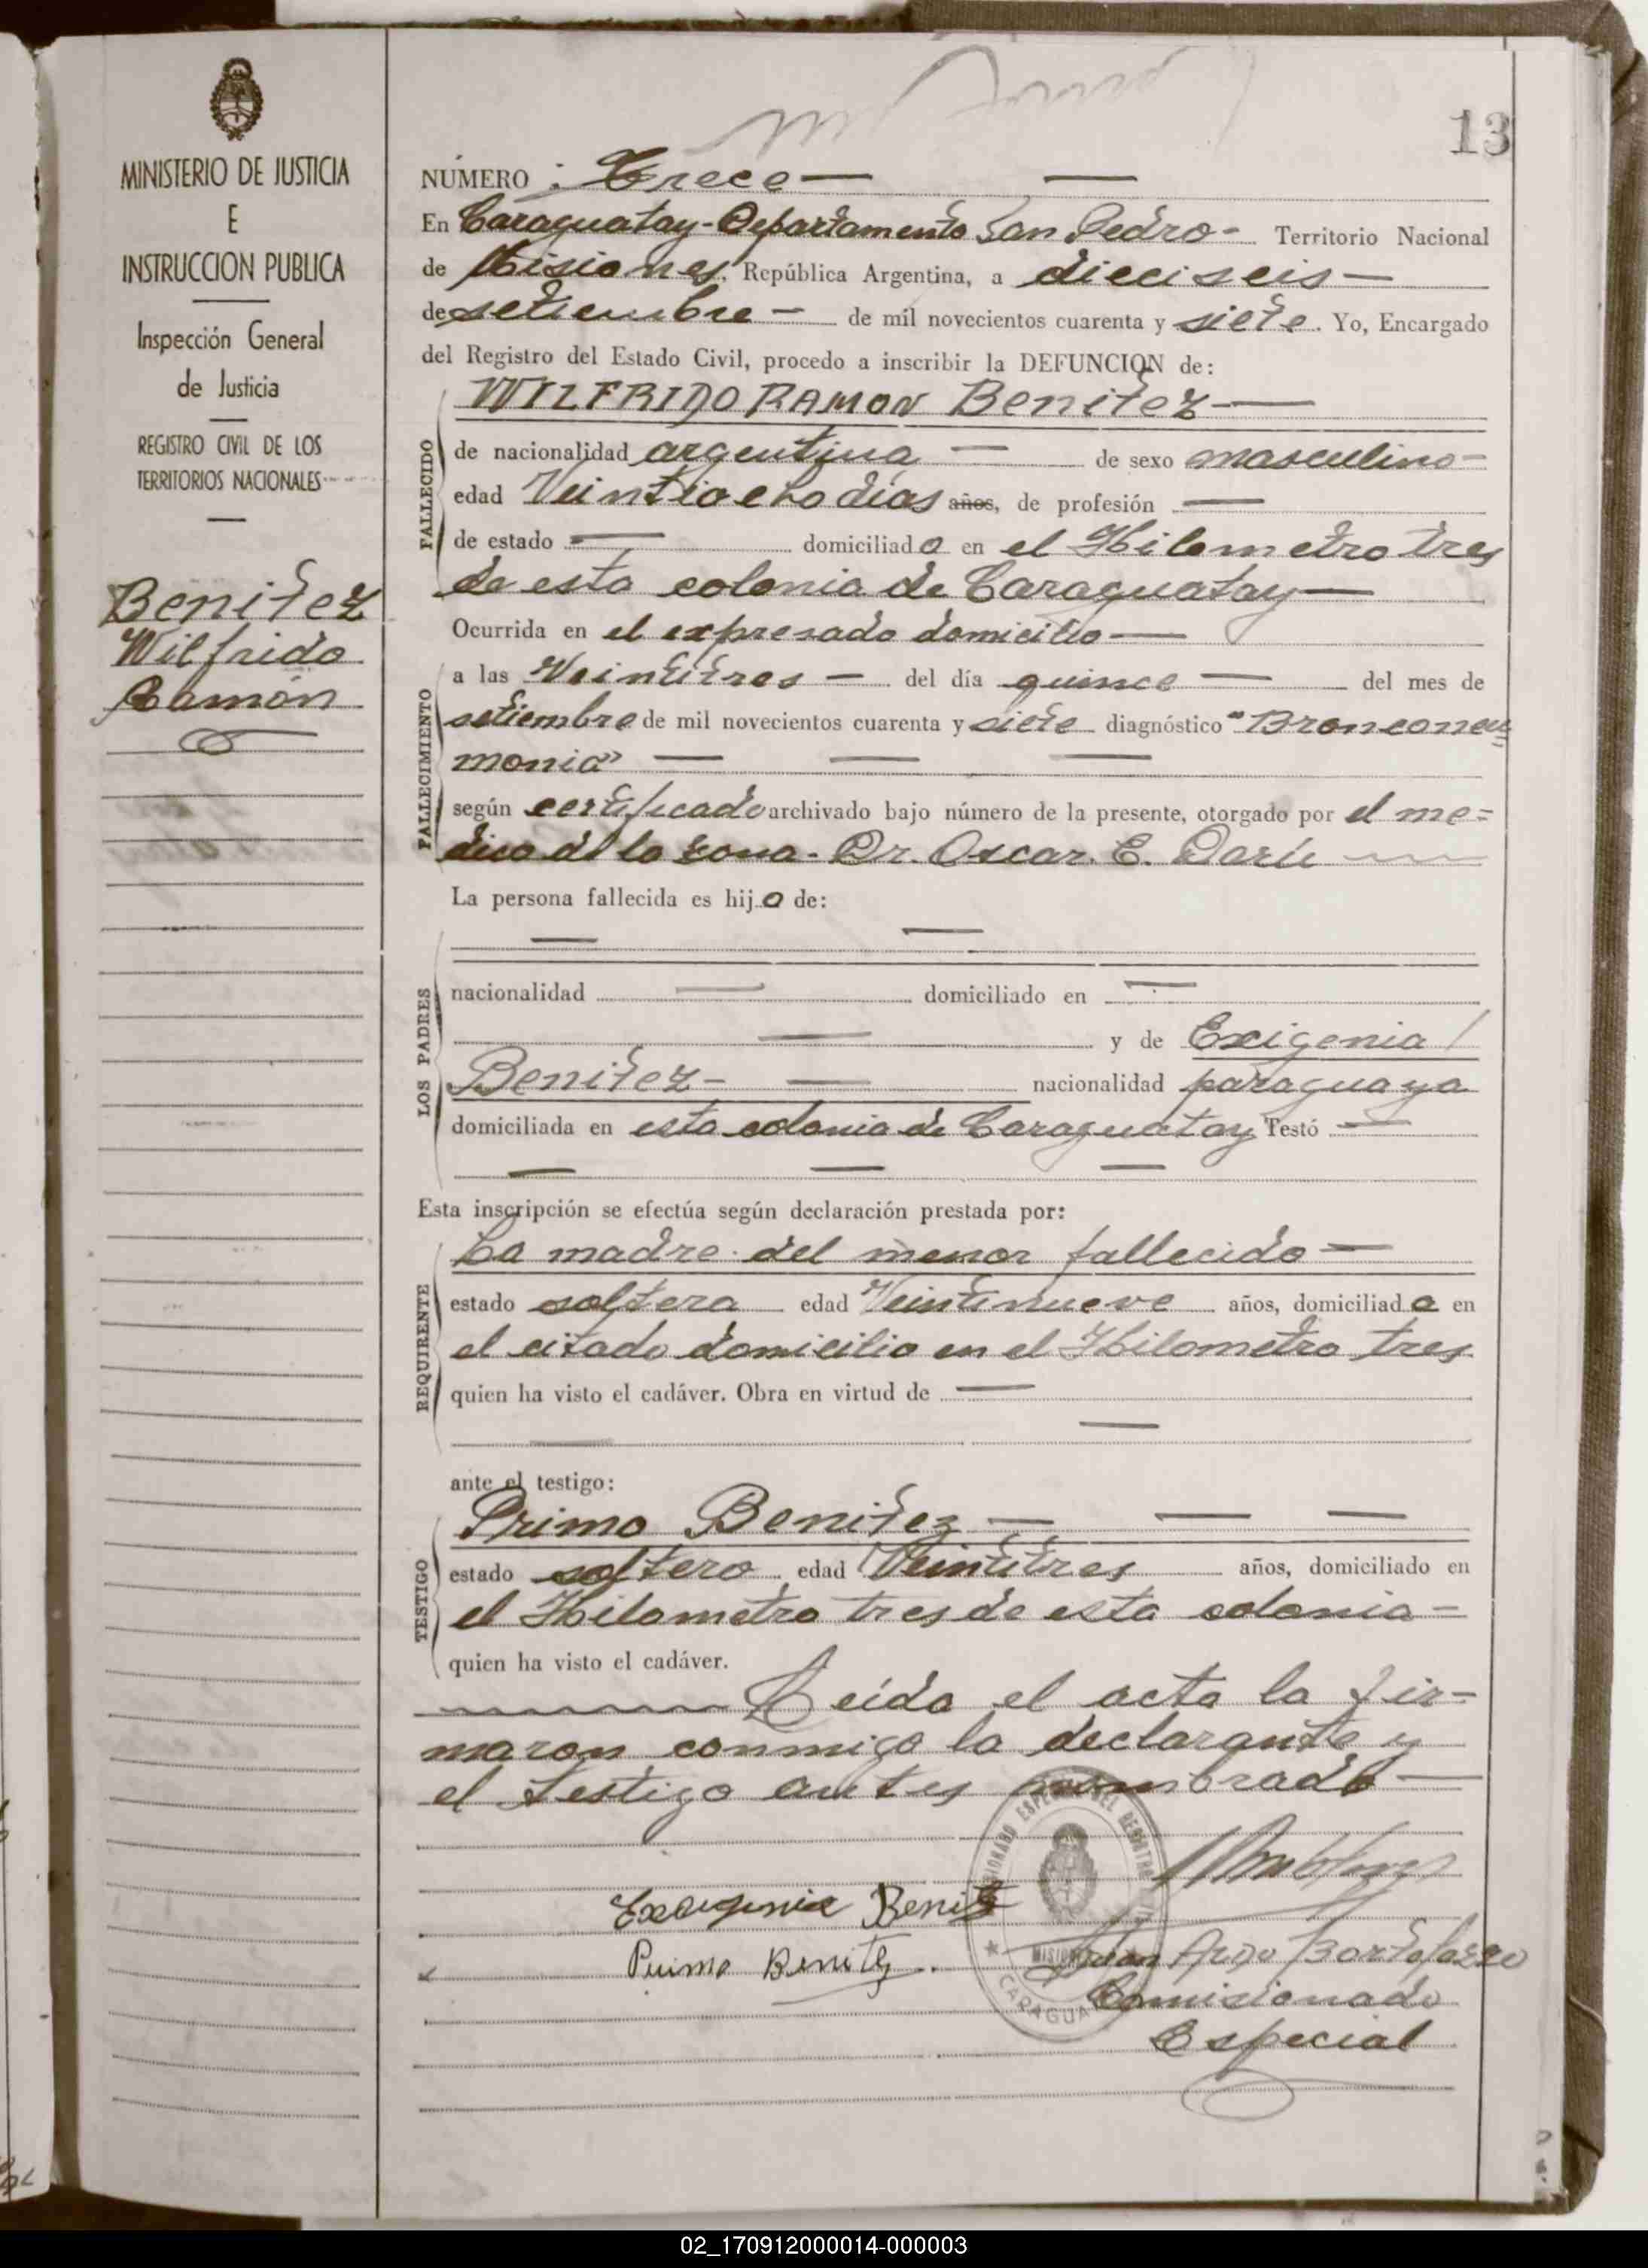 MINISTERIO DE JUSTICIA
E
INSTRUCCION PUBLICA
Inspección General
de Justicia
REGISTRO CIVIL DE LOS
TERRITORIOS NACIONALES
Benitez
Wilfrido
Ramón
13
NÚMERO : Trece —
En Caraguatay - Departamento San Pedro - Territorio Nacional
de Misiones, República Argentina, a dieciseis —
de setiembre — de mil novecientos cuarenta y siete. Yo, Encargado
del Registro del Estado Civil, procedo a inscribir la DEFUNCION de:
WILFRIDO RAMON Benitez —
FALLECIDO
de nacionalidad argentina — de sexo masculino -
edad Veintiocho días años, de profesión —
de estado — domiciliado en el Kilometro tres
de esta colonia de Caraguatay —
Ocurrida en el expresado domicilio —
FALLECIMIENTO
a las Veintitres — del día quince — del mes de
setiembre de mil novecientos cuarenta y siete diagnóstico "Bronconeu=
monia" —
según certificado archivado bajo número de la presente, otorgado por el me=
dico de la zona - Dr. Oscar. E.
La persona fallecida es hijo de:
LOS PADRES
nacionalidad — domiciliado en —
— y de Exigenia
Benitez - — nacionalidad paraguaya
domiciliada en esta colonia de Caraguatay Testó —
Esta inscripción se efectúa según declaración prestada por:
REQUIRENTE
La madre del menor fallecido —
estado soltera edad Veintinueve años, domiciliada en
el citado domicilio en el Kilometro tres
quien ha visto el cadáver. Obra en virtud de —
ante el testigo:
TESTIGO
Primo Benitez —
estado soltero edad Veintitres años, domiciliado en
el Kilometro tres de esta colonia -
quien ha visto el cadáver.
Leida el acta la fir-
maron conmigo la declarante y
el testigo antes nombrado —
Exigenia Benitez
Primo Benitez
CARAGUA
Comisionado
Especial
02_170912000014-000003